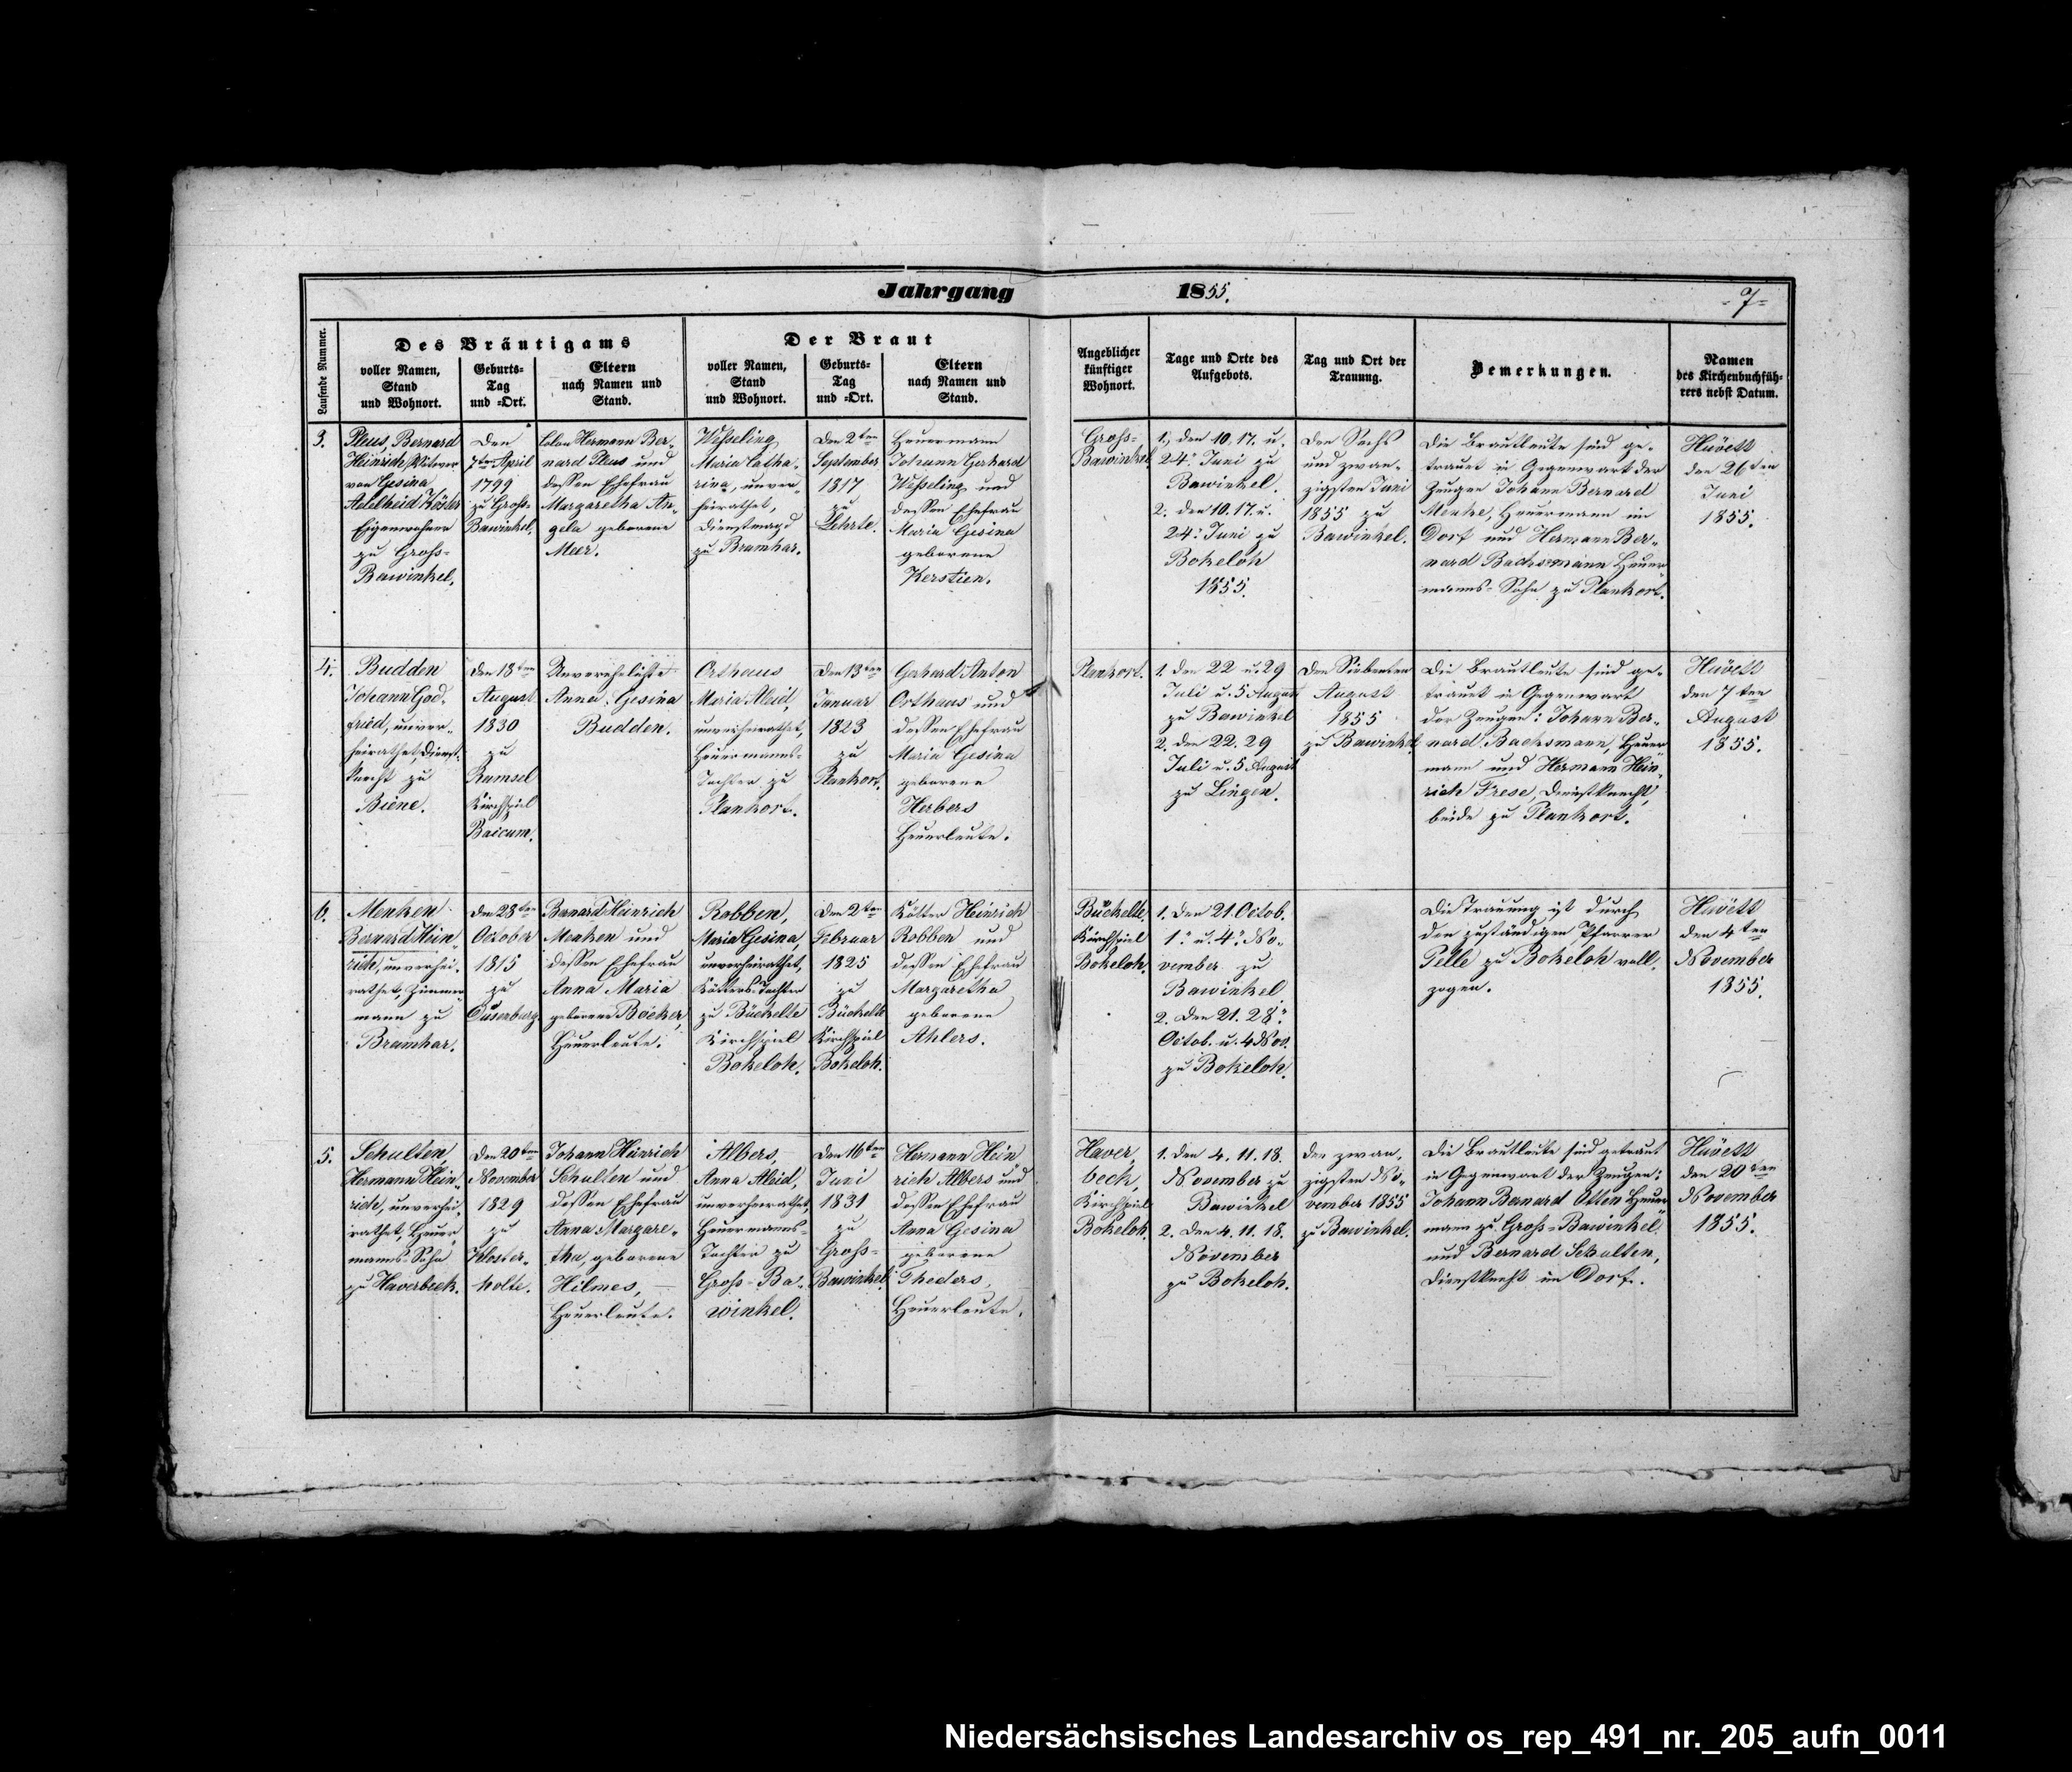 Jahrgang 1855.
- 7 -
Laufende Nummer.
Des Bräutigams
voller Namen,
Stand
und Wohnort.
Geburts-
Tag
und =Ort.
Eltern
nach Namen und
Stand.
Der Braut
voller Namen,
Stand
und Wohnort.
Geburts-
Tag
und =Ort.
Eltern
nach Namen und
Stand.
Angeblicher
künftiger
Wohnort.
Tage und Orte des
Aufgebots.
Tag und Ort der
Trauung.
Bemerkungen.
Namen
des Kirchenbuchfüh-
rers nebst Datum.
3.
Pleus, Bernard
Heinrich, Witwer
von Gesina
Adelheid Köster
Eigenwohner
zu Gross-
Bawinkel.
Den
7ten April
1799
zu Gross-
Bawinkel.
Colon Hermann Ber-
nard Pleus und
dessen Ehefrau
Margaretha An-
gela geborene
Meer.
Wesseling
Maria Catha-
rina, unver-
heirathet,
Dienstmagd
zu Bramhar.
Den 2ten
September
1817
zu
Lehrte.
Heuermann
Johann Gerhard
Wesseling und
dessen Ehefrau
Maria Gesina
geborene
Kerstien.
Gross-
Bawinkel
1., den 10. 17. u.
24. Juni zu
Bawinkel.
2. den 10. 17. u.
24. Juni zu
Bokeloh
1855.
Den Sechs
und zwan-
zigsten Juni
1855 zu
Bawinkel.
Die Brautleute sind ge-
trauet in Gegenwart der
Zeugen Johann Bernard
Menke, Heuermann im
Dorf und Hermann Ber-
nard Bachsmann Heuer
manns-Sohn zu Plankort.
Hüvett
den 26ten
Juni
1855.
4.
Budden
Johann God-
fried, unver-
heirathet, Dienst-
knecht zu
Biene.
Den 18ten
August
1830
zu
Ramsel
Kirchspiel
Baicum.
Unverehelichte
Anna Gesina
Budden.
Orthaus
Maria Aleid,
unverheirathet,
Heuermanns-
Tochter zu
Plankort.
Den 13ten
Januar
1823
zu
Plankort.
Gerhard Anton
Orthaus und
dessen Ehefrau
Maria Gesina
geborene
Herbers
Heuerleute.
Plankort.
1. den 22 u. 29
Juli u. 5 August
zu Bawinkel
2. den 22. 29
Juli u. 5 August
zu Lingen.
Den Siebenten
August
1855
zu Bawinkel.
Die Brautleute sind ge-
trauet in Gegenwart
der Zeugen: Johann Ber-
nard Bachsmann, Heuer
mann und Hermann Hein-
rich Frese, Dienstknecht,
beide zu Plankort.
Hüvett
den 7ten
August
1855.
6.
Menken
Bernard Hein-
rich, unverhei-
rathet, Zimmer-
mann zu
Bramhar.
Den 28ten
October
1815
zu
Duisenburg
Bernard Heinrich
Menken und
dessen Ehefrau
Anna Maria
geborene Böcker,
Heuerleute.
Robben,
Maria Gesina,
unverheirathet,
Kötters-Tochter
zu Bückelte
Kirchspiel
Bokeloh.
Den 2ten
Februar
1825
zu
Bückelte
Kirchspiel
Bokeloh.
Kötter Heinrich
Robben und
dessen Ehefrau
Margaretha
geborene
Ahlers.
Bückelte.
Kirchspiel
Bokeloh.
1. Den 21. Octob.
1. u. 4. No-
vember zu
Bawinkel
2. Den 21. 28.
Octob. u. 4 Nov.
zu Bokeloh.
Die Trauung ist durch
den zuständigen Pfarrer
Pelle zu Bokeloh voll-
zogen.
Hüvett
den 4ten
November
1855.
5.
Schulten,
Hermann Hein-
rich, unverhei-
rathet, Heuer
manns-Sohn
zu Haverbeck.
Den 20ten
November
1829
zu
Kloster-
holte.
Johann Heinrich
Schulten und
dessen Ehefrau
Anna Margare-
tha, geborene
Hilmes,
Heuerleute.
Albers,
Anna Aleid,
unverheirathet,
Heuermanns-
Tochter zu
Gross-Ba-
winkel.
Den 16ten
Juni
1831
zu
Gross-
Bawinkel
Hermann Hein
rich Albers und
dessen Ehefrau
Anna Gesina
geborene
Theders,
Heuerleute.
Haver,
beck,
Kirchspiel
Bokeloh
1. Den 4. 11. 18.
November zu
Bawinkel
2. Den 4. 11. 18.
November
zu Bokeloh.
Den zwan-
zigsten No-
vember 1855
zu Bawinkel.
Die Brautleute sind getraut
in Gegenwart der Zeugen:
Johann Bernard Otten Heuer
mann zu Gross-Bawinkel
und Bernard Schulten,
Dienstknecht im Dorf.
Hüvett
den 20ten
November
1855.
Niedersächsisches Landesarchiv os_rep_491_nr._205_aufn_0011